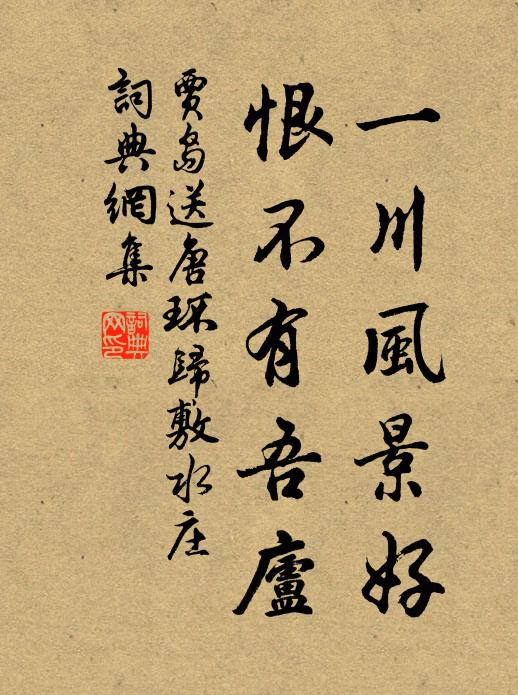 一川風景好
恨不有吾廬
賈島送唐环歸敷水庄
詞典網集
詞典網印